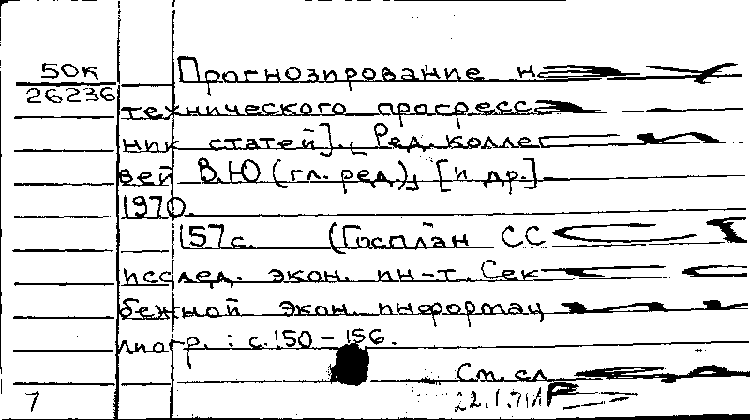 50к
26236
Прогнозирование н
технического прогресс
ник статей]. Ред. коллег
вей В.Ю (гл. ред), [и др.]
1970.
157с. (Госплан СС
исслед. экон. ин-т. Сек
бежной экон. информац
лиогр.: с. 150-156.
См. сл
7